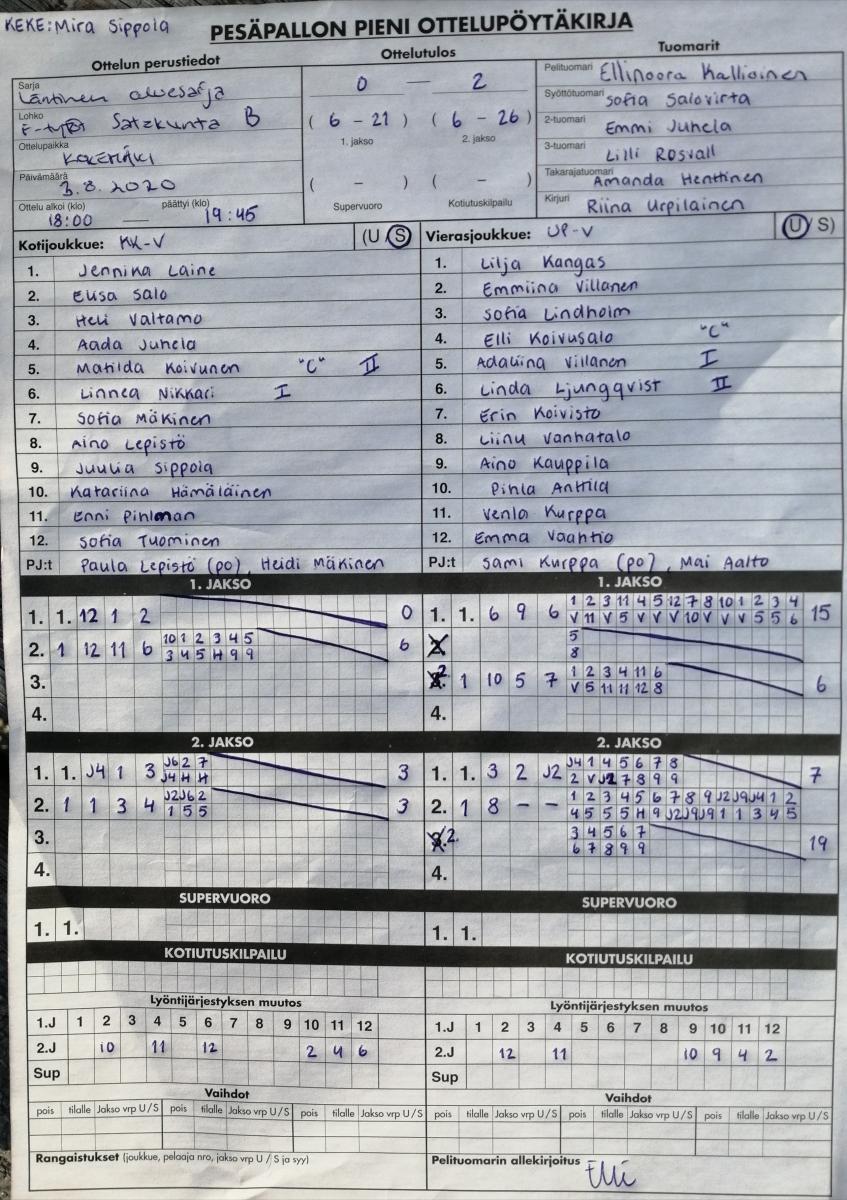 KEKE: Mira Sippola
PESÄPALLON PIENI OTTELUPÖYTÄKIRJA
Ottelun perustiedot
Sarja
Läntinen aluesarja
Lohko
F-tytöt Satakunta B
Ottelupaikka
KOKEMÄKI
Päivämäärä
3.8.2020
Ottelu alkoi (klo) päättyi (klo)
18:00 — 19:45
Ottelutulos
0 — 2
( 6 - 21 ) ( 6 - 26 )
1. jakso 2. jakso
( - ) ( - )
Supervuoro Kotiutuskilpailu
Tuomarit
Pelituomari Ellinoora Kallioinen
Syöttötuomari Sofia Salovirta
2-tuomari Emmi Juhela
3-tuomari Lilli Rosvall
Takarajatuomari Amanda Henttinen
Kirjuri Riina Urpilainen
Kotijoukkue: KK-V (U/S)
1. Jennika Laine
2. Elisa Salo
3. Heli Valtamo
4. Aada Juhela
5. Matilda Koivunen "C" II
6. Linnea Nikkari I
7. Sofia Mäkinen
8. Aino Lepistö
9. Juulia Sippola
10. Katariina Hämäläinen
11. Enni Pihlman
12. Sofia Tuominen
PJ:t Paula Lepistö (po), Heidi Mäkinen
Vierasjoukkue: UP-V (U/S)
1. Lilja Kangas
2. Emmiina Villanen
3. Sofia Lindholm
4. Elli Koivusalo "C"
5. Adaliina Villanen I
6. Linda Ljungqvist II
7. Erin Koivisto
8. Liinu Vanhatalo
9. Aino Kauppila
10. Pihla Anttila
11. Venla Kurppa
12. Emma Vaahtio
PJ:t Sami Kurppa (po), Mai Aalto
1. JAKSO
1. 1. 12 1 2 0
2. 1 12 11 6 10 1 2 3 4 5 6
3 4 5 H 9 9
3.
4.
1. JAKSO
1. 1. 6 9 6 1 2 3 11 4 5 12 7 8 10 1 2 3 4 15
V 11 V 5 V V V 10 V V V 5 5 6
5
8
2 1 10 5 7 1 2 3 4 11 6 6
V 5 11 11 12 8
4.
2. JAKSO
1. 1. J4 1 3 J6 2 7 3
J4 H H
2. 1 1 3 4 J2 J6 2 3
1 5 5
3.
4.
2. JAKSO
1. 1. 3 2 J2 J4 1 4 5 6 7 8 7
2 V J2 7 8 9 9
2. 1 8 - - 1 2 3 4 5 6 7 8 9 J2 J9 J4 1 2
4 5 5 5 H 9 J2 J9 J9 1 1 3 4 5
2. 3 4 5 6 7 19
6 7 8 9 9
4.
SUPERVUORO
1. 1.
SUPERVUORO
1. 1.
KOTIUTUSKILPAILU
KOTIUTUSKILPAILU
Lyöntijärjestyksen muutos
1.J 1 2 3 4 5 6 7 8 9 10 11 12
2.J 10 11 12 2 4 6
Sup
Lyöntijärjestyksen muutos
1.J 1 2 3 4 5 6 7 8 9 10 11 12
2.J 12 11 10 9 4 2
Sup
Vaihdot
pois tilalle Jakso vrp U/S pois tilalle Jakso vrp U/S pois tilalle Jakso vrp U/S
Vaihdot
pois tilalle Jakso vrp U/S pois tilalle Jakso vrp U/S pois tilalle Jakso vrp U/S
Rangaistukset (joukkue, pelaaja nro, jakso vrp U / S ja syy)
Pelituomarin allekirjoitus Elli